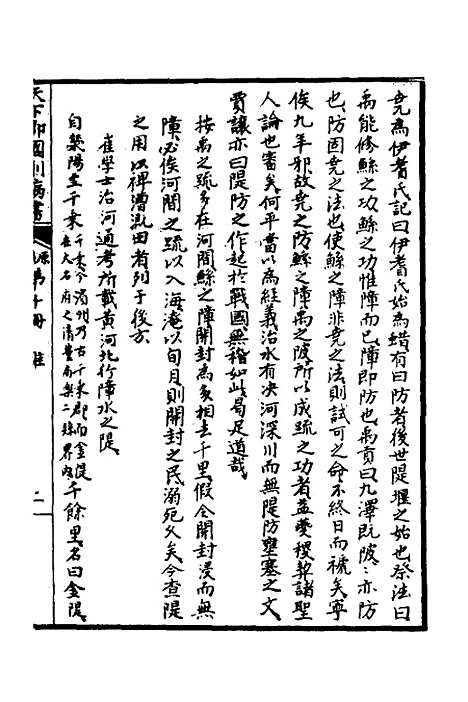 堯為伊耆氏記曰伊耆氏始為蜡有曰防者後世隄堰之始也祭法曰
禹能修鯀之功鯀之功惟障而已障即防也禹貢曰九澤既陂陂亦防
也防固堯之法也使鯀之障非堯之法則試可之命不終日而褫矣寧
俟九年邪故堯之防鯀之障禹之陂所以成疏之功者益夔稷契諸聖
人論也審矣何平當以為經義治水有决河深川而無隄防壅塞之文
賈讓亦曰隄防之作起於戰國無稽如此曷足道哉
按禹之疏多在河間鯀之障開封為多相去千里假令開封浸而無
障必俟河間之疏以入海淹以旬月則開封之民溺死久矣今查隄
之用以裨漕溉田者列于後方
崔學士治河通考所載黃河北行障水之隄
自滎陽至千乘千乘今濱州乃古千乘郡而金隄在大名府之清豐南樂二縣界內千餘里名曰金隄
天下郡國利病書
原第十冊 淮
二